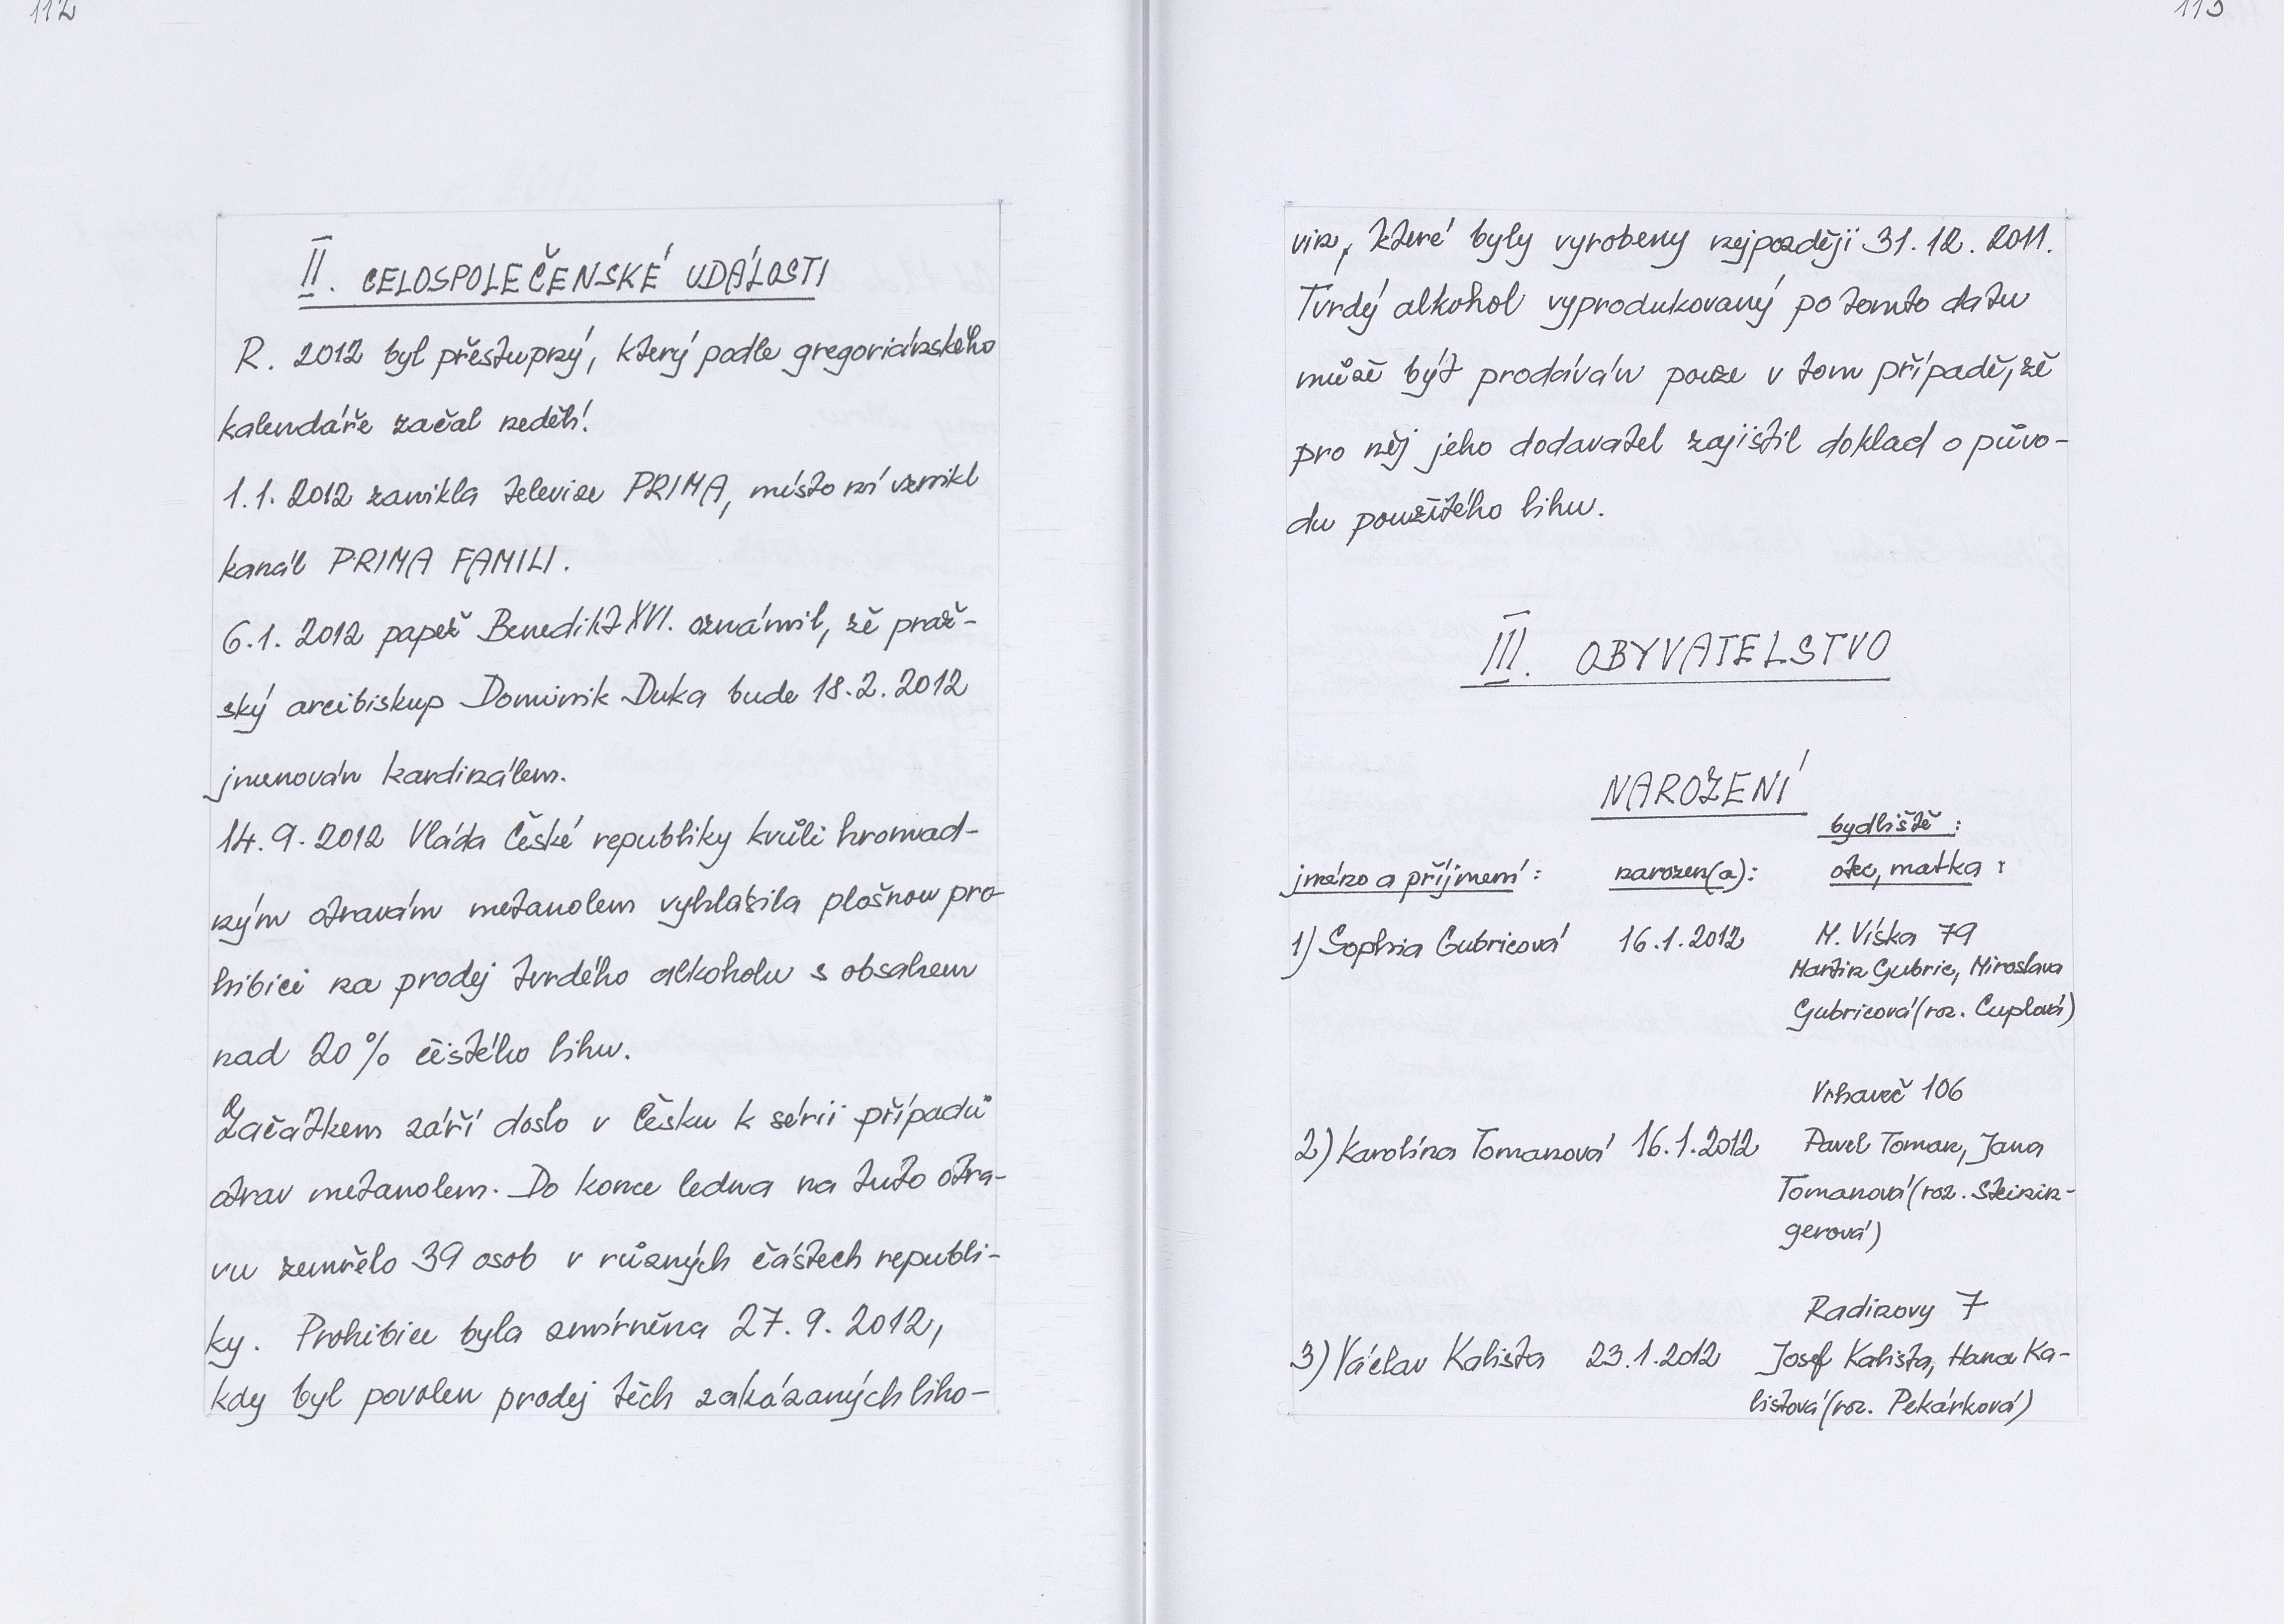 112
II. CELOSPOLEČENSKÉ UDÁLOSTI
R. 2012 byl přestupný, který podle gregoriánského
kalendáře začal nedělí.
1.1. 2012 zanikla televize PRIMA, místo ní vznikl
kanál PRIMA FAMILI.
6.1. 2012 papež Benedikt XVI. oznámil, že praž-
ský arcibiskup Dominik Duka bude 18.2. 2012
jmenován kardinálem.
14. 9. 2012 Vláda České republiky kvůli hromad-
ným otravám metanolem vyhlásila plošnou pro-
hibici na prodej tvrdého alkoholu s obsahem
nad 20% čistého lihu.
Začátkem září doslo v Česku k sérii případů
otrav metanolem. Do konce ledna na tuto otra-
vu zemřelo 39 osob v různých částech republi-
ky. Prohibice byla zmírněna 27. 9. 2012,
kdy byl povolen prodej těch zakázaných liho-
113
vin, které byly vyrobeny nejpozději 31. 12. 2011.
Tvrdý alkohol vyprodukovaný po tomto datu
může být prodáván pouze v tom případě, že
pro něj jeho dodavatel zajistil doklad o půvo-
du použitého lihu.
III. OBYVATELSTVO
NAROZENÍ
bydliště:
jméno a příjmení: narozen(a): otec, matka:
1) Sophia Gubricová 16.1.2012 M. Víska 79
Martin Gubric, Miroslava
Gubricová (roz. Cuplová)
Vrhaveč 106
2) Karolína Tomanová 16.1.2012 Pavel Toman, Jana
Tomanová (roz. Steinin-
gerová)
Radinovy 7
3) Václav Kalista 23.1.2012 Josef Kalista, Hana Ka-
listová (roz. Pekárková)